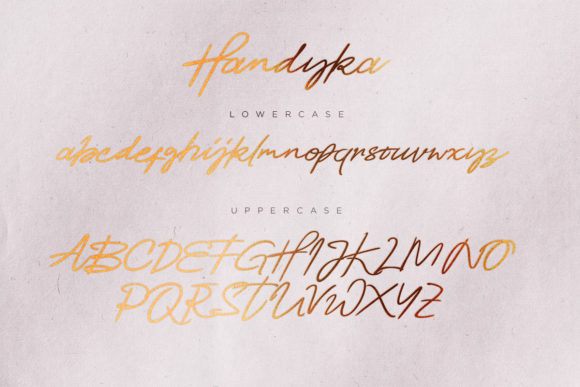 Handyka
LOWERCASE
abcdefghijklmnopqrstuvwxyz
UPPERCASE
ABCDEFGHIJKLMNO
PQRSTUVWXYZ